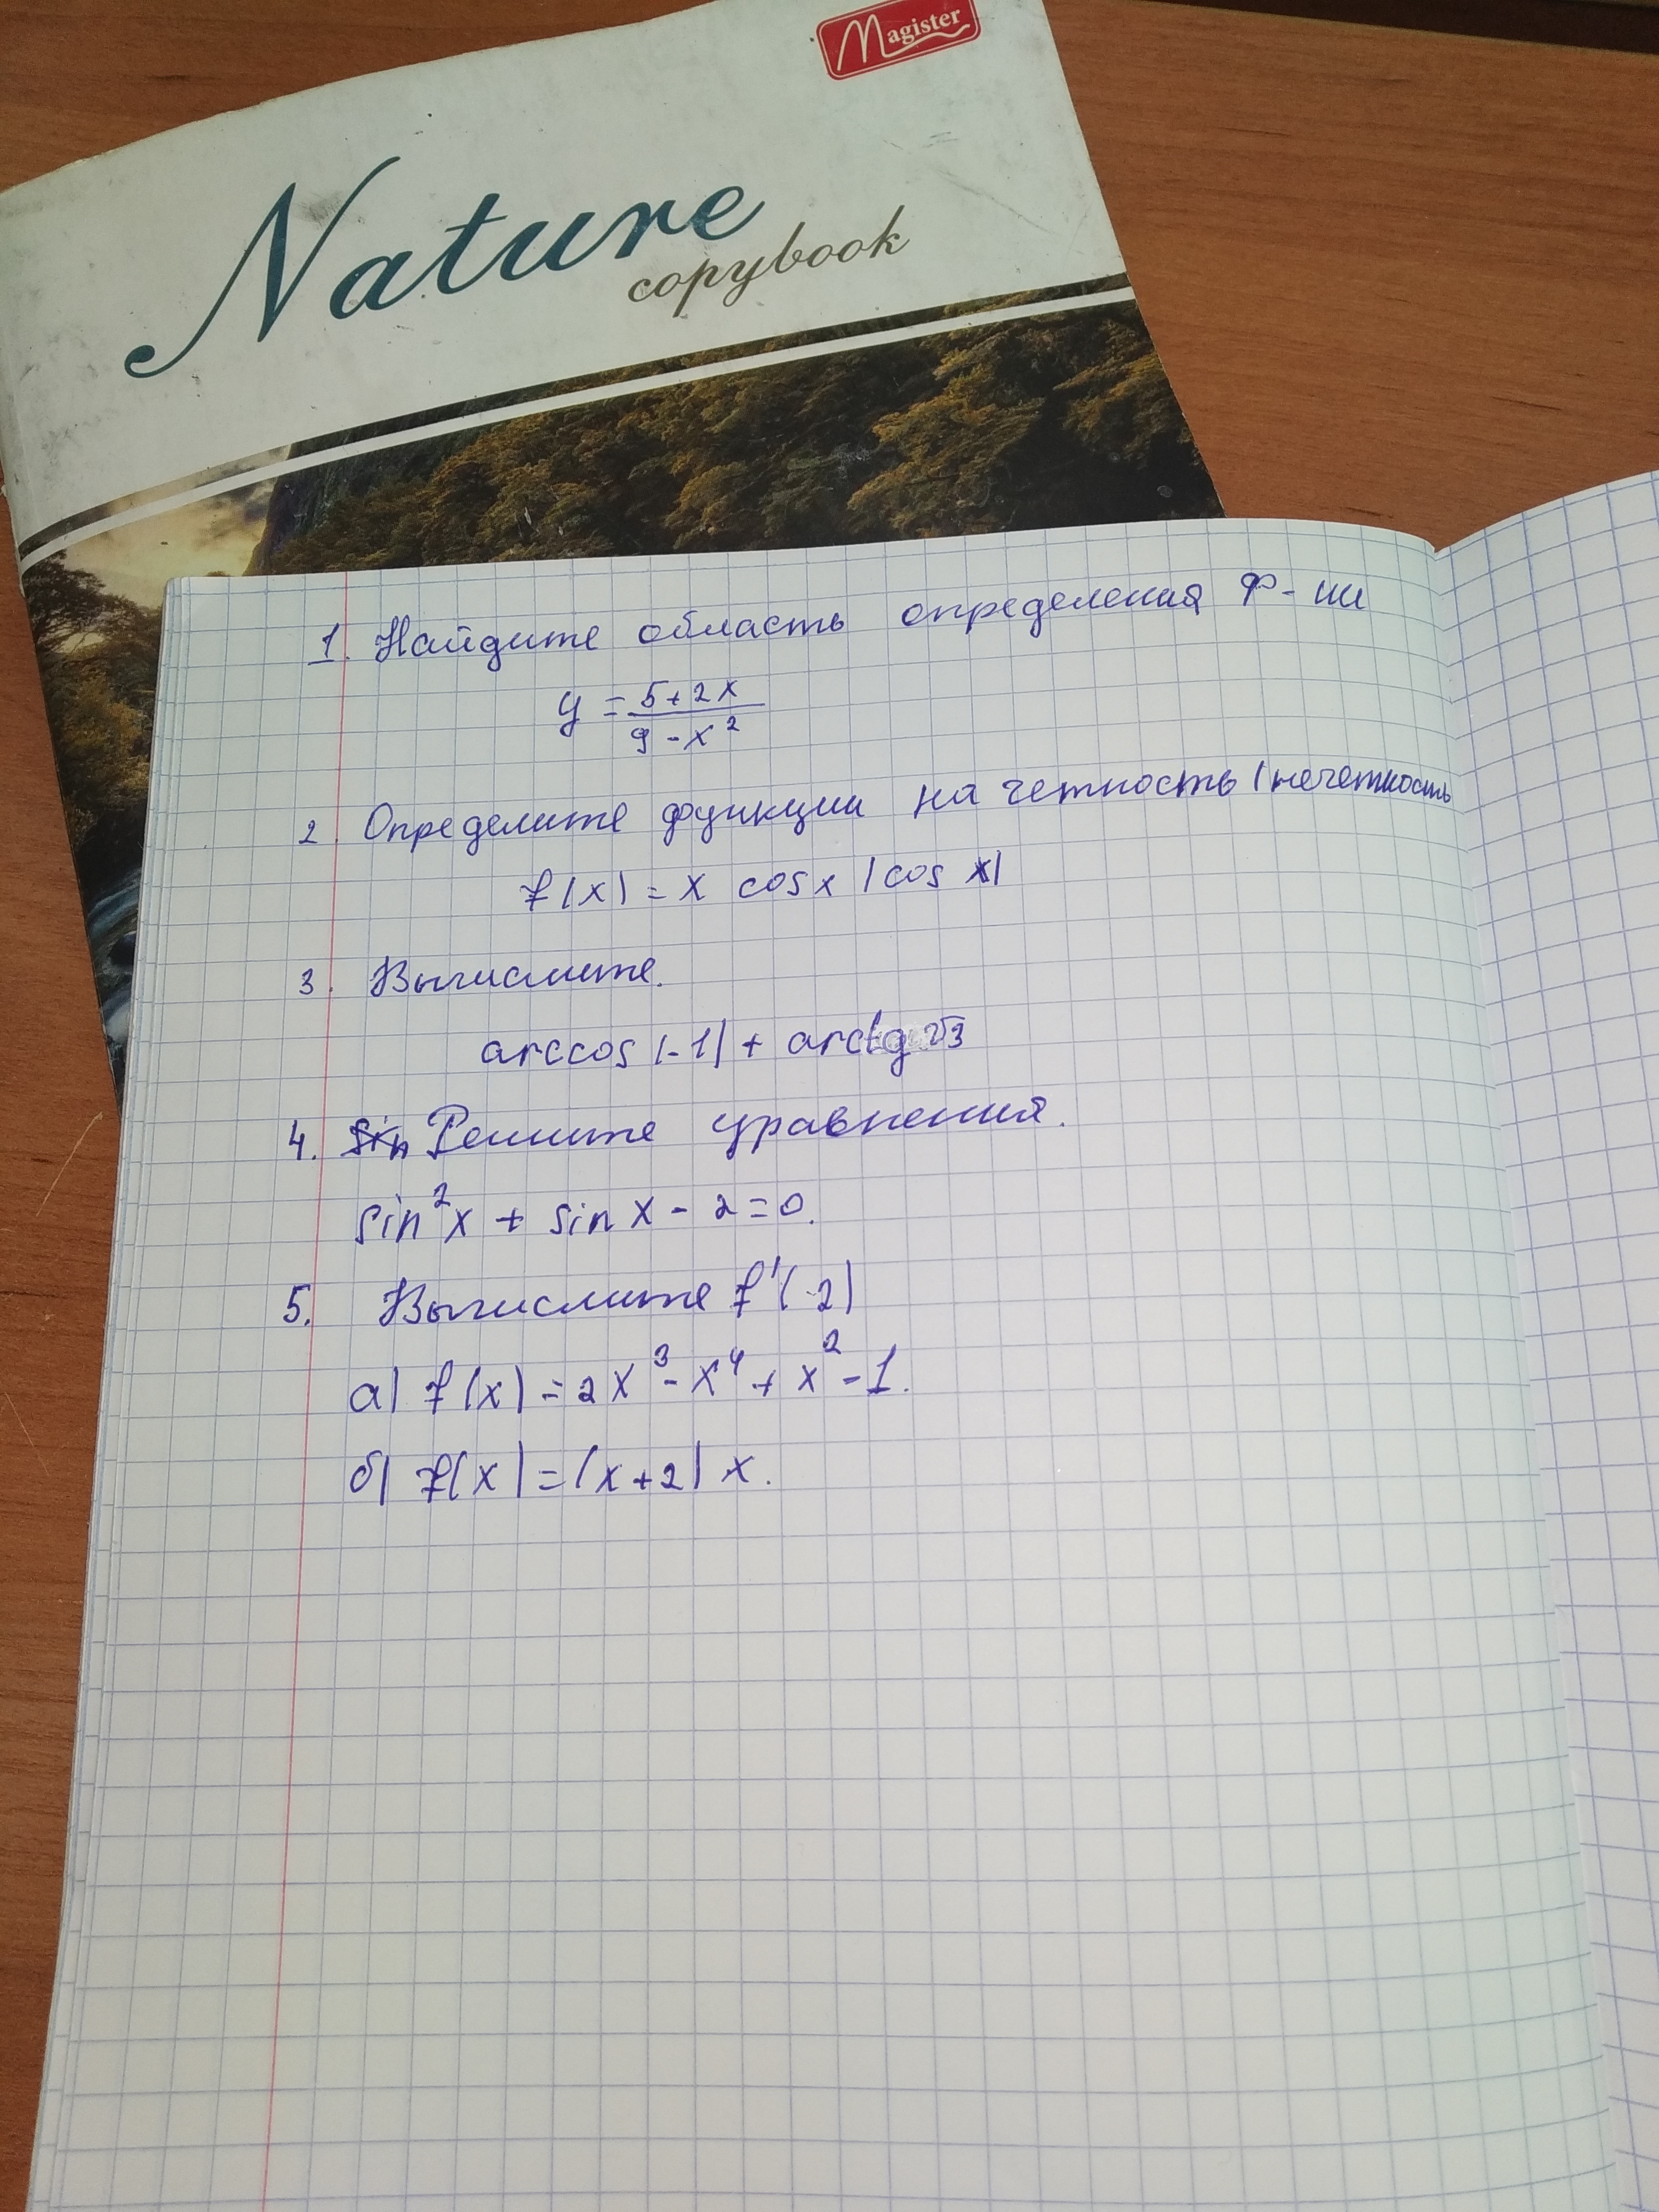 Magister
Nature
copybook
1. Найдите область определения ф-ии
y = (5+2x)/(9-x²)
2. Определите функции на четность (нечетность
f(x) = x cosx |cos x|
3. Вычислите.
arccos(-1) + arctg √3
4. sin Решите уравнения.
sin²x + sin x - 2 = 0.
5. Вычислите f'(-2)
а) f(x) = 2x³ - x⁴ + x² - 1.
б) f(x) = (x+2) x.